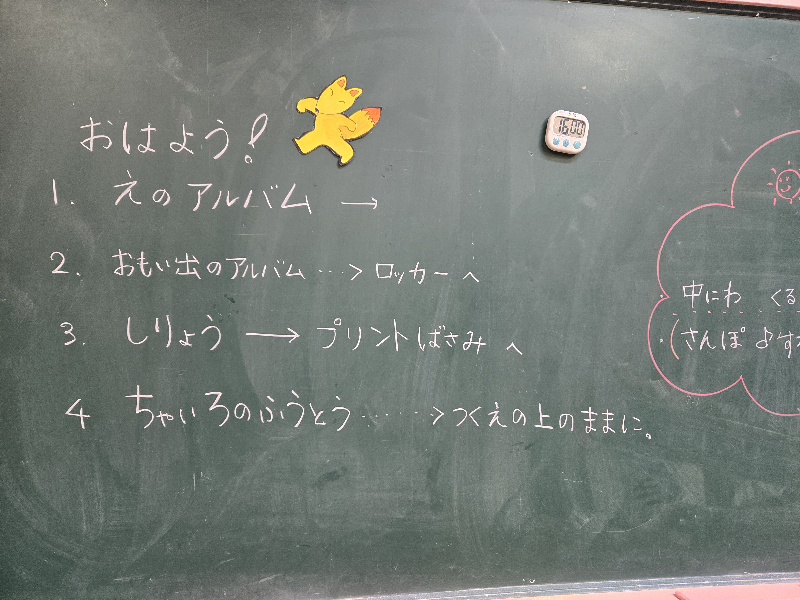 おはよう!
1. えのアルバム →
2. おもい出のアルバム…> ロッカーへ
3. しりょう → プリントばさみへ
4 ちゃいろのふうとう……> つくえの上のままに。
16:00
中にわ くる
(さんぽ♪す